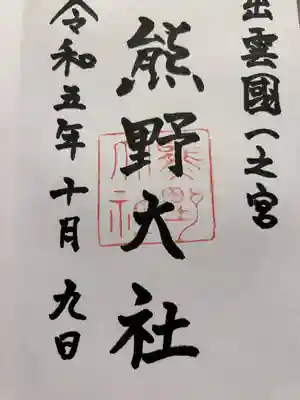 出雲國一之宮
熊野大社
令和五年十月九日